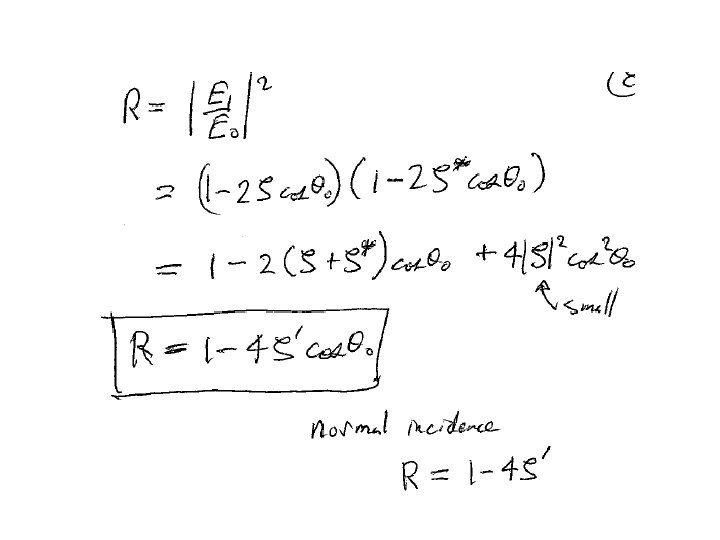 (c
R = |E₁/E₀|²
= (1-2ζ cosθ₀)(1-2ζ* cosθ₀)
= 1-2(ζ+ζ*)cosθ₀ + 4|ζ|²cos²θ₀
small
R = 1-4ζ′cosθ₀
normal incidence
R = 1-4ζ′